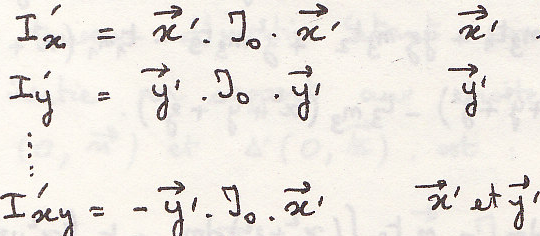 I'x = x⃗'. J₀. x⃗' x⃗'.
I'y = y⃗'. J₀. y⃗' y⃗'
⋮
I'xy = - y⃗'. J₀. x⃗' x⃗' et y⃗'